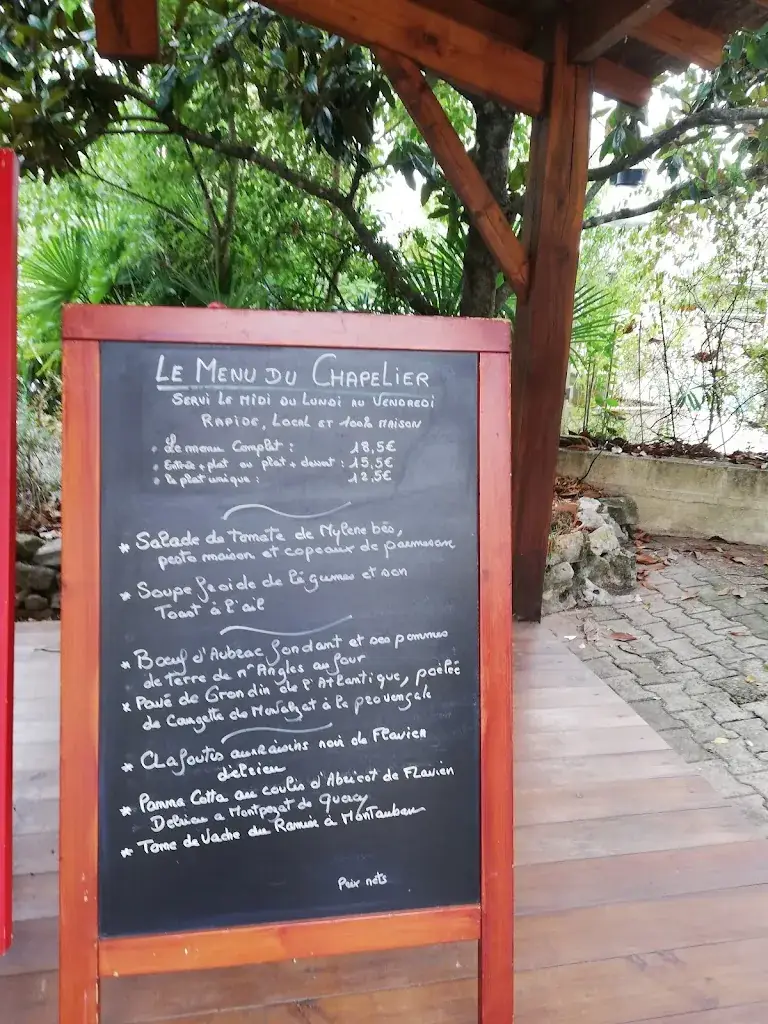 Le Menu du Chapelier
Servi le midi du Lundi au Vendredi
Rapide, Local et 100% maison
• Le menu Complet : 18,5€
• Entrée + plat ou plat + dessert : 15,5€
• Le plat unique : 12,5€
* Salade de tomate de Mylene bio,
pesto maison et copeaux de parmesan
* Soupe froide de légumes et son
Toast à l'ail
* Bœuf d'Aubrac fondant et ses pommes
de terre de Mr Angles au four
* Pavé de Grondin de l'Atlantique, poêlée
de Courgette de à la provençale
* Clafoutis aux raisins noir de Flavien
Delrieu
* Panna Cotta au coulis d'Abricot de Flavien
Delrieu a Montpezat de Quercy
* Tome de Vache du Ramier à Montauban
Prix nets